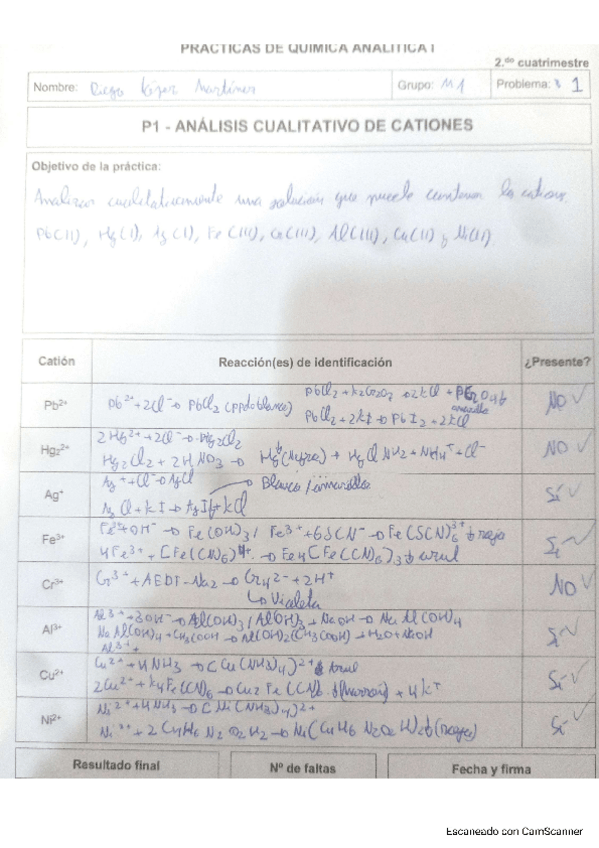 PRÁCTICAS DE QUÍMICA ANALÍTICA I
2.do cuatrimestre
Nombre: Diego López Martínez Grupo: M1 Problema: 1
P1 - ANÁLISIS CUALITATIVO DE CATIONES
Objetivo de la práctica:
Analizar cualitativamente una solución que puede contener los cationes
Pb(II), Hg(I), Ag(I), Fe(III), Cr(III), Al(III), Cu(II) y Ni(II)
Catión Reacción(es) de identificación ¿Presente?
Pb²⁺ Pb²⁺+2Cl⁻→ PbCl₂ (ppdo blanco) NO ✓
PbCl₂+2kI→ PbI₂+2kCl
amarillo
Hg₂²⁺ 2Hg²⁺+2Cl⁻→Hg₂Cl₂ NO ✓
Hg₂Cl₂+2HNO₃→ Hg↓(Negro)+HgClNH₂+NH₄⁺+Cl⁻
Ag⁺ Ag⁺+Cl⁻→AgCl Sí ✓
AgCl+kI→AgI↓+kCl
Blanco/amarillo
Fe³⁺ → Fe(OH)₃/ Fe³⁺+6SCN⁻→Fe(SCN)₆³⁺ rojo Sí ✓
4Fe³⁺+[Fe(CN)₆]⁴⁻→Fe₄[Fe(CN)₆]₃↓ azul
Cr³⁺ Cr³⁺+AEDT-Na₂→CrY²⁻+2H⁺ NO ✓
↳Violeta
Al³⁺ Al³⁺+3OH⁻→Al(OH)₃/Al(OH)₃+NaOH→NaAl(OH)₄ Sí ✓
NaAl(OH)₄+CH₃COOH→Al(OH)₂(CH₃COOH)+H₂O+NaOH
Al³⁺+
Cu²⁺ Cu²⁺+4NH₃→[Cu(NH₃)₄]²⁺ Azul Sí ✓
2Cu²⁺+k₄Fe(CN)₆→Cu₂Fe(CN)₆↓(marrón)+4k⁺
Ni²⁺ Ni²⁺+4NH₃→[Ni(NH₃)₄]²⁺ Sí ✓
Ni²⁺+2C₄H₈N₂O₂H₂→Ni(C₄H₆N₂O₂H)₂↓(rojo)
Resultado final Nº de faltas Fecha y firma
Escaneado con CamScanner